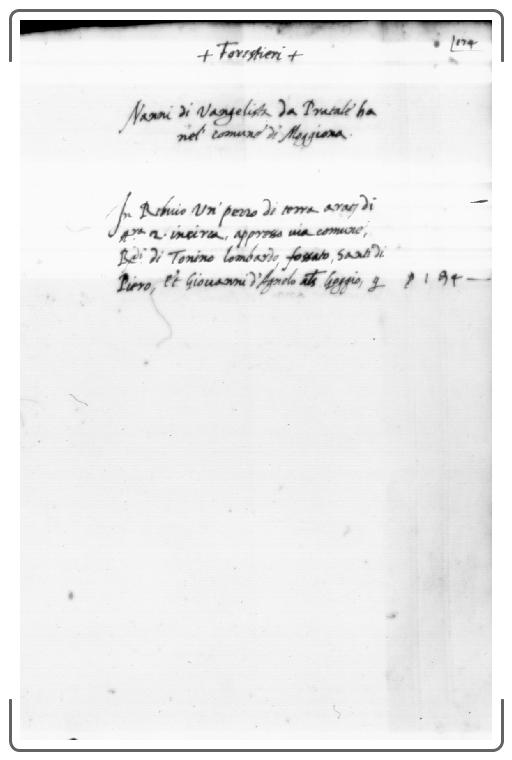 174
+ Forestieri +
Nanni di Vangelista da Pratale ha
nel comune di Moggiona.
In Rebuio un' pezzo di terra
2. incirca, appresso via comune,
di Tonino lombardo, fossato, Santi di
Piero, et Giovanni d'Agnolo als